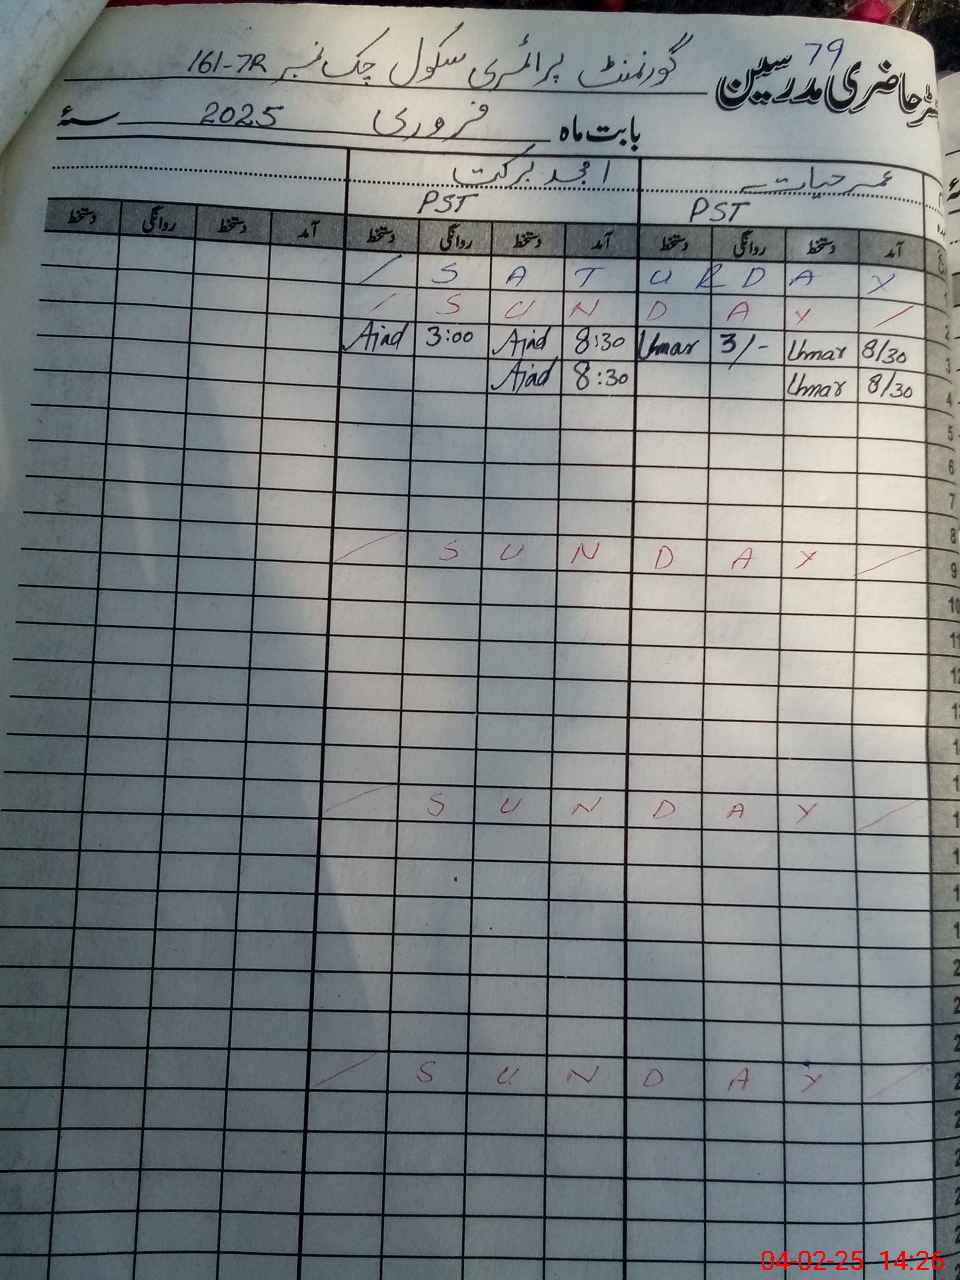 79
رجسٹر حاضری مدرسین
گورنمنٹ پرائمری سکول چک نمبر 161-7R
بابت ماہ فروری 2025 سنہ
عمر حیات امجد برکت
PST PST
آمد دستخط روانگی دستخط آمد دستخط روانگی دستخط آمد دستخط روانگی دستخط
/ S A T U R D A Y
1
/ S U N D A Y /
2
Ajad 3:00 Ajad 8:30 Umar 3/- Umar 8/30
3
Ajad 8:30 Umar 8/30
4
5
6
7
8
/ S U N D A Y /
9
10
11
12
/ S U N D A Y /
/ S U N D A Y /
04-02-25 14:26